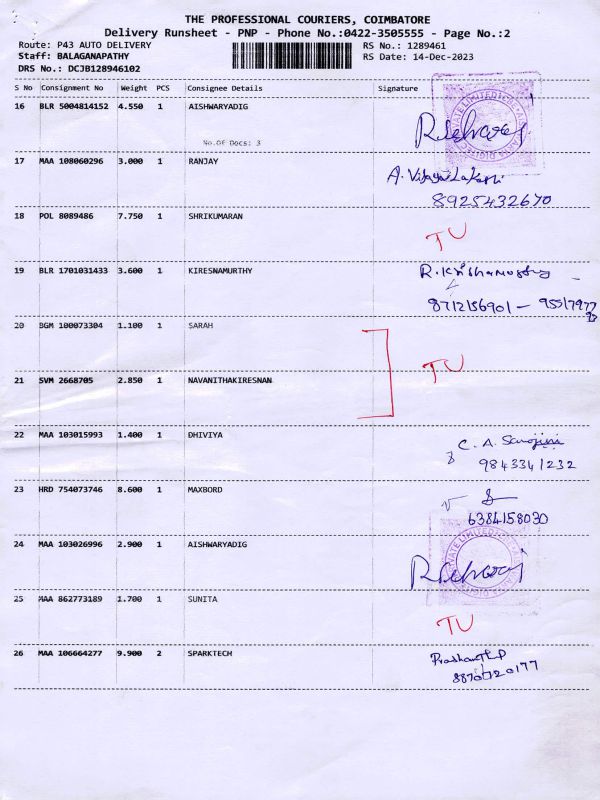 THE PROFESSIONAL COURIERS, COIMBATORE
Delivery Runsheet - PNP - Phone No.:0422-3505555 - Page No.:2
Route: P43 AUTO DELIVERY RS No.: 1289461
Staff: BALAGANAPATHY RS Date: 14-Dec-2023
DRS No.: DCJB128946102
S No Consignment No Weight PCS Consignee Details Signature
16 BLR 5004814152 4.550 1 AISHWARYADIG
No.Of Docs: 3
17 MAA 108060296 3.000 1 RANJAY A. Vijayalakshmi
8925432670
18 POL 8089486 7.750 1 SHRIKUMARAN TU
19 BLR 1701031433 3.600 1 KIRESNAMURTHY R. Krishnamoorthy
8712156901 -
20 BGM 100073304 1.100 1 SARAH
TU
21 SVM 2668705 2.850 1 NAVANITHAKIRESNAN
22 MAA 103015993 1.400 1 DHIVIYA C. A. Sarojini
9843341232
23 HRD 754073746 8.600 1 MAXBORD
6384158030
24 MAA 103026996 2.900 1 AISHWARYADIG
25 MAA 862773189 1.700 1 SUNITA TU
26 MAA 106664277 9.900 2 SPARKTECH Prashanth.P
8870720177